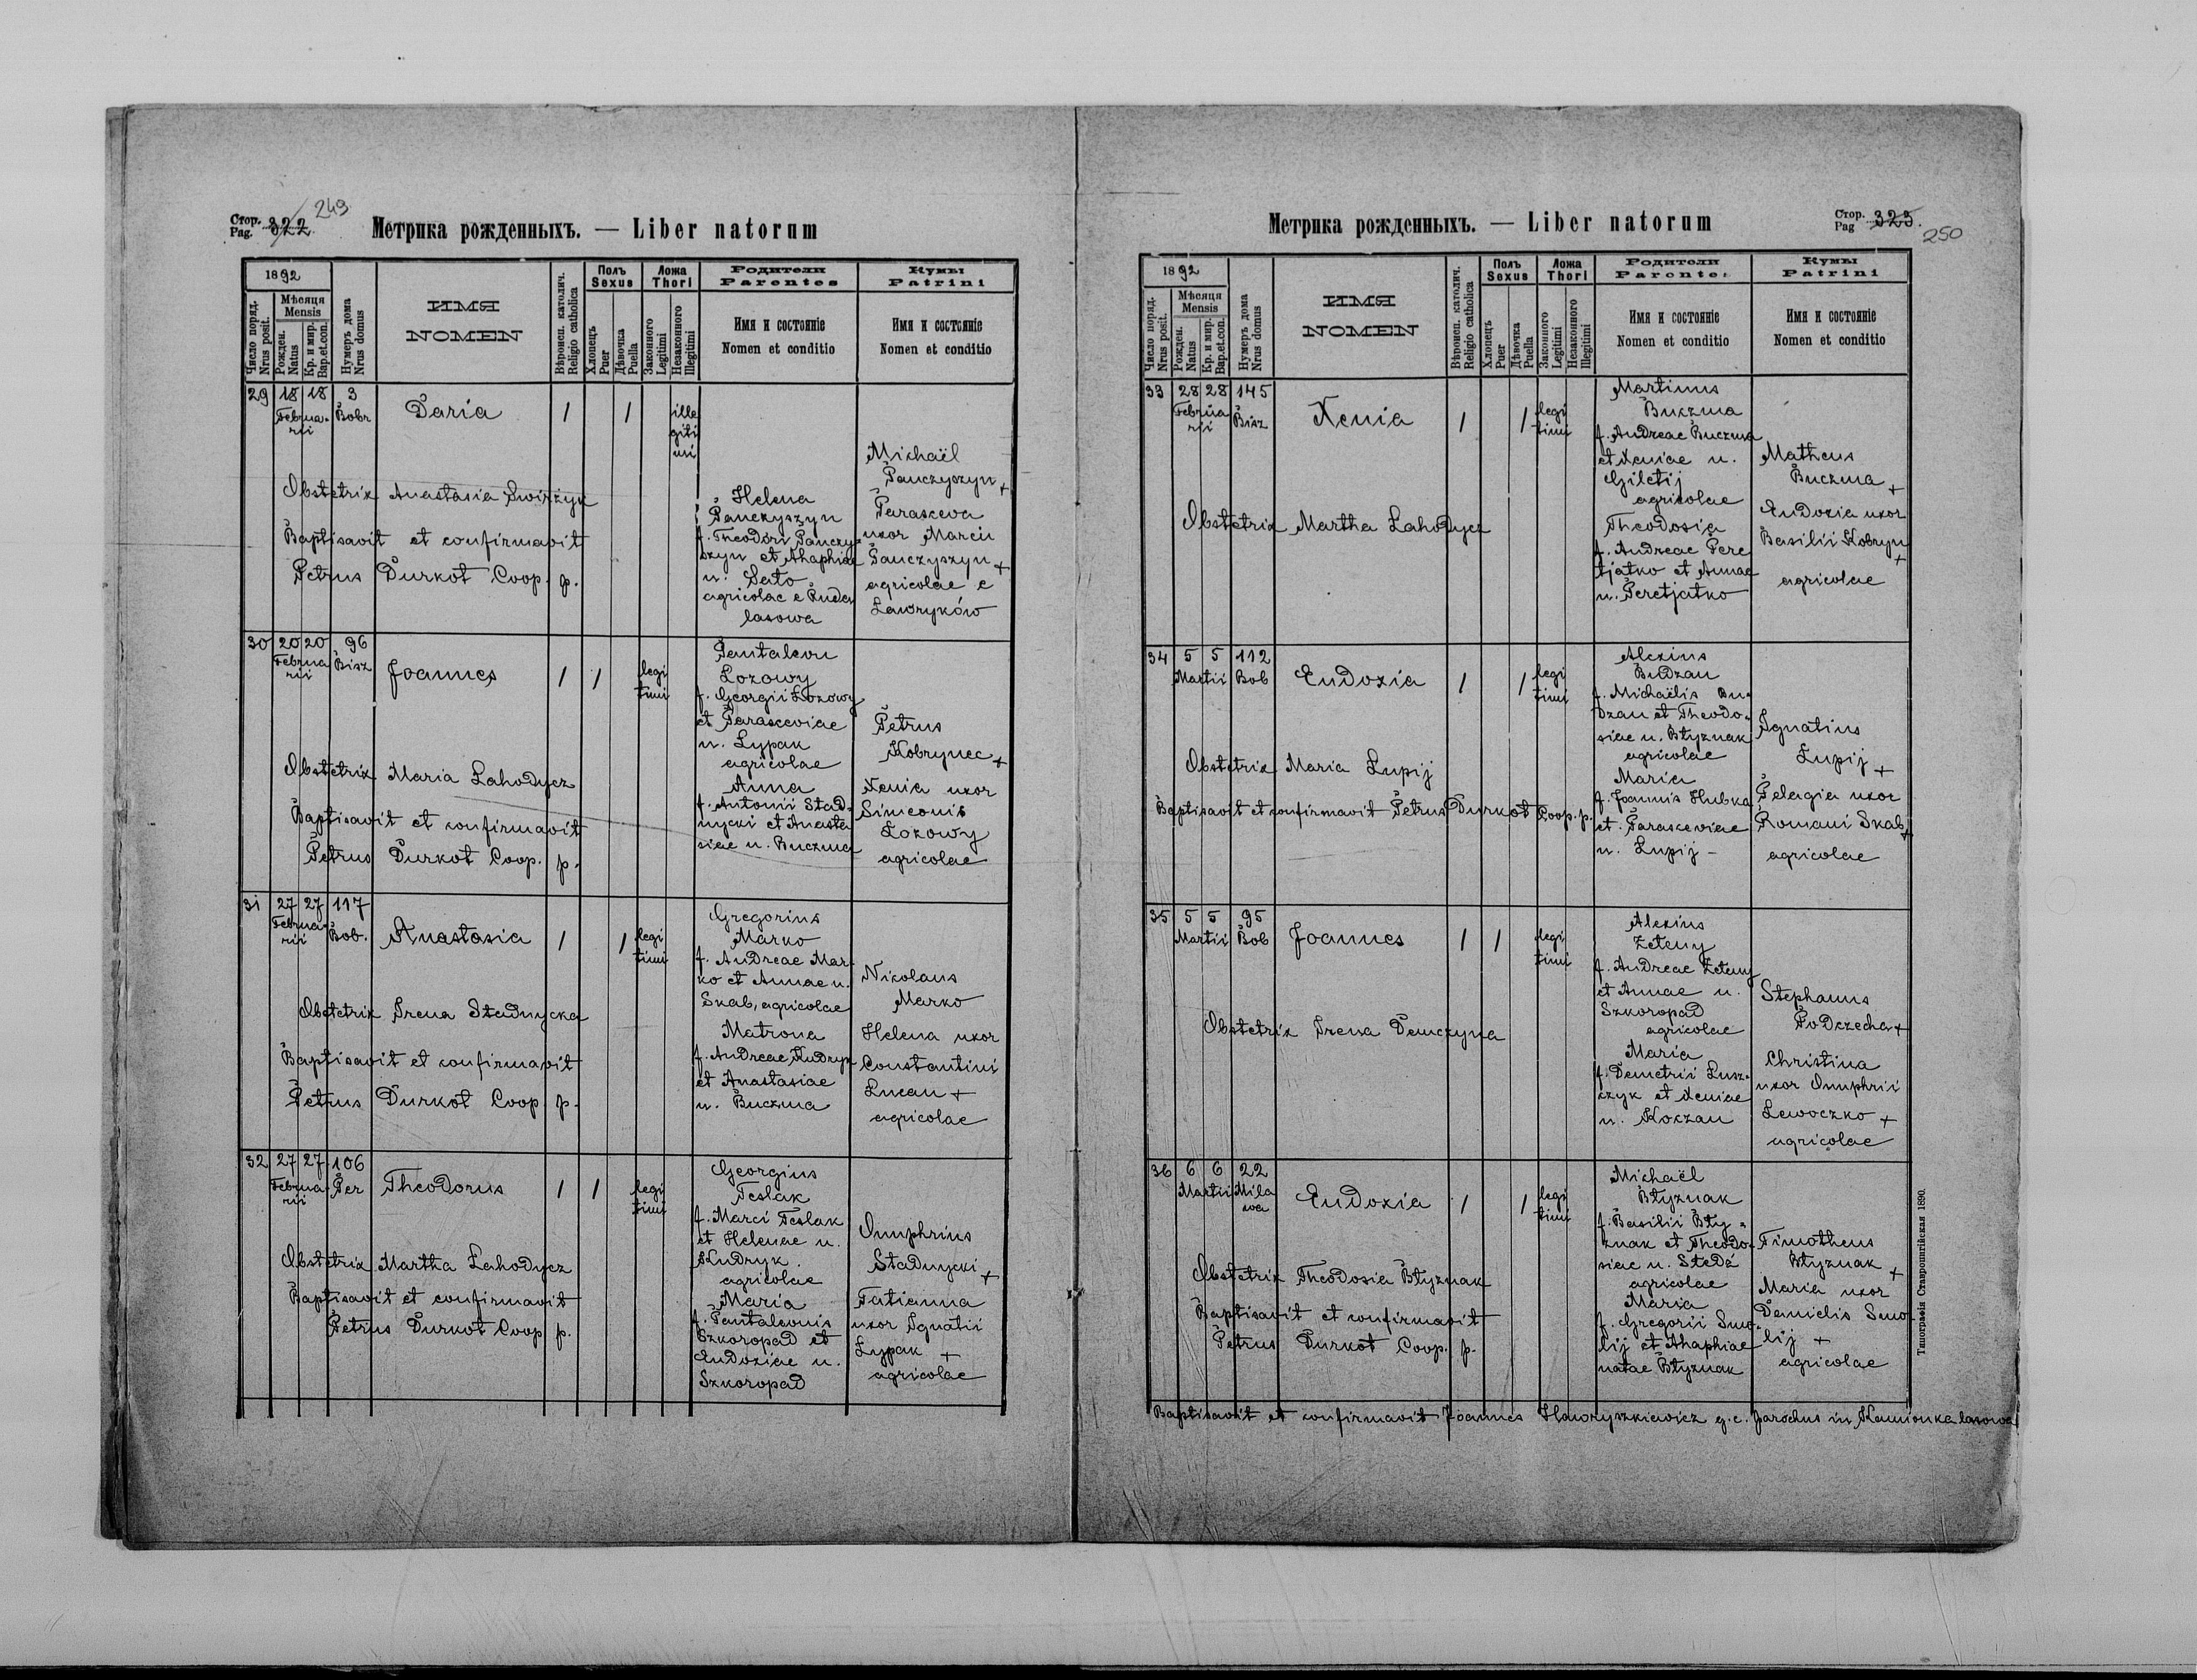 Стор. Pag. 322 249
Метрика рожденныхъ. — Liber natorum
1892
Число поряд. Nrus posit.
Мѣсяця Mensis
Рожден. Natus
Кр. и мир. Bap.et.con.
Нумеръ дома Nrus domus
ИМЯ
NOMEN
Вѣроисп. католич. Religio catholica
Полъ Sexus
Хлопецъ Puer
Дѣвочка Puella
Ложа Thori
Законного Legitimi
Незаконного Illegitimi
Родители
Parentes
Имя и состояніе
Nomen et conditio
Кумы
Patrini
Имя и состояніе
Nomen et conditio
29 18 18 3
Februarii Bobr
Daria 1 1 illegitimi
Obstetrix Anastasia Swiżyk
Baptisavit et confirmavit
Petrus Durkot Coop. p.
Helena
Panczyszyn
f. Theodori Panczy-
szyn et Ahaphiae
n. Sato
agricolae e Ruda
lasowa
Michaël
Panczyszyn +
Parasceva
uxor Marcii
Panczyszyn +
agricolae e
Ławryków
30 20 20 96
Februarii Bisz
Joannes 1 1 legitimi
Obstetrix Maria Lahodycz
Baptisavit et confirmavit
Petrus Durkot Coop. p.
Pantaleon
Łozowy
f. Georgii Łozowy
et Parasceviae
n. Łypak
agricolae
Anna
f. Antonii Stad-
nycki et Anasta
siae n. Buczma
Petrus
Kobrynec +
Xenia uxor
Simeonis
Łozowy
agricolae
31 27 27 117
Februarii Bob.
Anastasia 1 1 legitimi
Obstetrix Irena Stadnycka
Baptisavit et confirmavit
Petrus Durkot Coop p.
Gregorius
Marko
f. Andreae Mar
ko et Annae n.
Skab, agricolae
Matrona
f. Andreae Kudryk
et Anastasiae
n. Buczma
Nicolaus
Marko
Helena uxor
Constantini
Lucau +
agricolae
32 27 27 106
Februarii Per
Theodorus 1 1 legitimi
Obstetrix Martha Lahodycz
Baptisavit et confirmavit
Petrus Durkot Coop p.
Georgius
Teslak
f. Marci Teslak
et Helenae n.
Kudryk.
agricolae
Maria
f. Pantaleonis
Szkoropad et
Eudoxiae n.
Szkoropad
Onuphrius
Stadnycki +
Tatianna
uxor Ignatii
Łypak +
agricolae
Метрика рожденныхъ. — Liber natorum
Стор. Pag 323. 250
1892
Число поряд. Nrus posit.
Мѣсяця Mensis
Рожден. Natus
Кр. и мир. Bap.et.con.
Нумеръ дома Nrus domus
ИМЯ
NOMEN
Вѣроисп. католич. Religio catholica
Полъ Sexus
Хлопецъ Puer
Дѣвочка Puella
Ложа Thori
Законного Legitimi
Незаконного Illegitimi
Родители
Parentes
Имя и состояніе
Nomen et conditio
Кумы
Patrini
Имя и состояніе
Nomen et conditio
33 28 28 145
Februarii Bisz
Xenia 1 1 legitimi
Obstetrix Martha Lahodycz
Martinus
Buczma
f. Andreae Buczma
et Xeniae n.
Giletij
agricolae
Theodosia
f. Andreae Pere
tjatko et Annae
n. Peretjatko
Matheus
Buczma +
Eudoxia uxor
Basilii Kobryn +
agricolae
34 5 5 112
Martii Bob
Eudoxia 1 1 legitimi
Obstetrix Maria Łupij
Baptisavit et confirmavit Petrus Durkot Coop. p.
Alexius
Budzan
f. Michaëlis Bu-
dzan et Theodo-
siae n. Błyznak
agricolae
Maria
f. Joannis Hubka
et Parasceviae
n. Łupij -
Ignatius
Łupij +
Pelagia uxor
Romani Skab +
agricolae
35 5 5 95
Martii Bob
Joannes 1 1 legitimi
Obstetrix Irena Demczyna
Alexius
Zeteny
f. Andreae Zeteny
et Annae n.
Szkoropad
agricolae
Maria
f. Demetrii Łusz-
czyk et Xeniae
n. Koczan
Stephanus
Podczecha +
Christina
uxor Onuphrii
Lewoczko +
agricolae
36 6 6 22
Martii Milawa
Eudoxia 1 1 legitimi
Obstetrix Theodosia Błyznak
Baptisavit et confirmavit
Petrus Durkot Coop. p.
Michaël
Błyznak
f. Basilii Bły-
znak et Theodo-
siae n. Stedź
agricolae
Maria
f. Gregorii Smo-
lij et Ahaphiae
natae Błyznak
Timotheus
Błyznak +
Maria uxor
Danielis Smo
lij +
agricolae
Baptisavit et confirmavit Joannes Hawryszkiewicz g. c. parochus in Kamionka lasowa
Типографія Ставропигійская 1890.